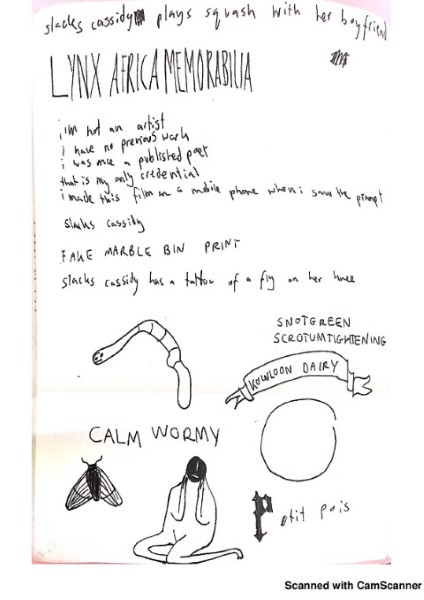 slacks cassidy plays squash with her boyfriend
LYNX AFRICA MEMORABILIA
i'm not an artist
i have no previous work
i was once a published poet
that is my only credential
i made this film on a mobile phone when i saw the prompt
slacks cassidy
FAKE MARBLE BIN PRINT
slacks cassidy has a tattoo of a fly on her knee
SNOTGREEN
SCROTUMTIGHTENING
KOWLOON DAIRY
CALM WORMY
Petit pois
Scanned with CamScanner